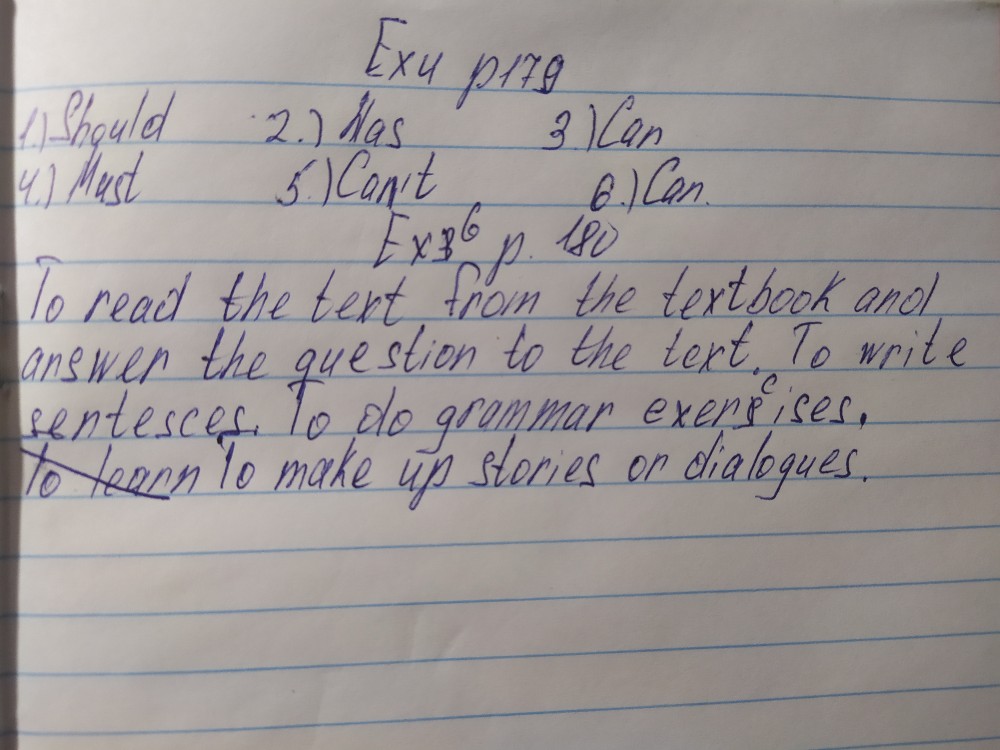 Ex 4 p 179
1.) Should 2.) Has 3.) Can
4.) Must 5.) Can't 6.) Can.
Ex 6 p. 180
To read the text from the textbook and
answer the question to the text. To write
sentesces. To do grammar exercises.
To learn To make up stories or dialogues.